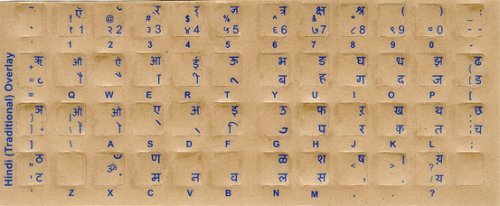 Hindi (Traditional) Overlay
! ऍ @ # $ र् % ज्ञ ^ त्र & क्ष * श्र ( )
१ 1 २ 2 ३ 3 ४ 4 ५ 5 ६ 6 ७ 7 ८ 8 ९ 9 ० 0
1 2 3 4 5 6 7 8 9 0 -
ऋ औ ऐ आ ई ऊ भ ङ घ ध झ ढ
= ृ ौ ै ा ी ू ब ह ग द ज ड
= Q W E R T Y U I O P [
ञ ऑ ओ ए अ इ उ फ ऱ ख थ छ
] ॉ ो े ् ि ु प र क त च
] \ A S D F G H J K L ;
ठ ँ ण ळ श ष < > य़
' ट ॐ ं म न व ल स , . / य
' Z X C V B N M , . ?